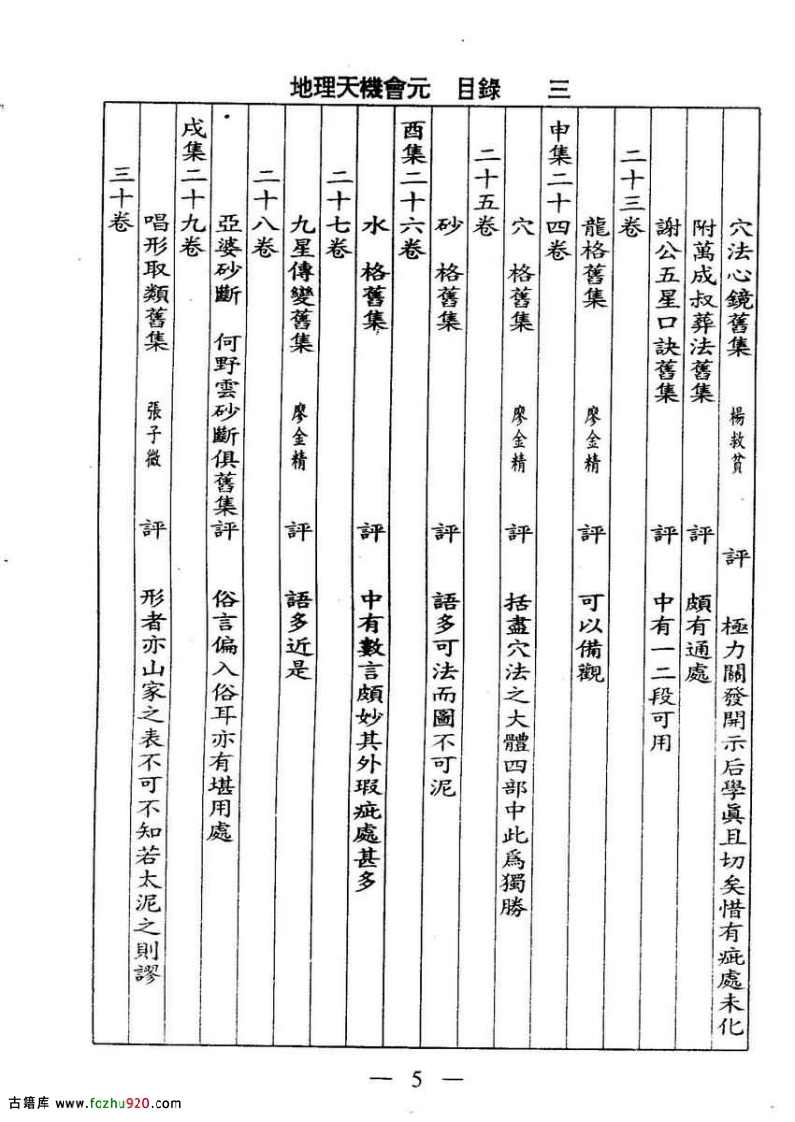 地理天機會元 目錄 三
穴法心鏡舊集 楊救貧 評 極力闢發開示后學眞且切矣惜有疵處未化
附萬成叔葬法舊集 評 頗有通處
謝公五星口訣舊集 評 中有一二段可用
二十三卷
龍格舊集 廖金精 評 可以備觀
申集二十四卷
穴 格舊集 廖金精 評 括盡穴法之大體四部中此爲獨勝
二十五卷
砂 格舊集 評 語多可法而圖不可泥
酉集二十六卷
水 格舊集 評 中有數言頗妙其外瑕疵處甚多
二十七卷
九星傳變舊集 廖金精 評 語多近是
二十八卷
亞婆砂斷 何野雲砂斷俱舊集 評 俗言偏入俗耳亦有堪用處
戌集二十九卷
唱形取類舊集 張子微 評 形者亦山家之表不可不知若太泥之則謬
三十卷
— 5 —
古籍库 www.fozhu920.com